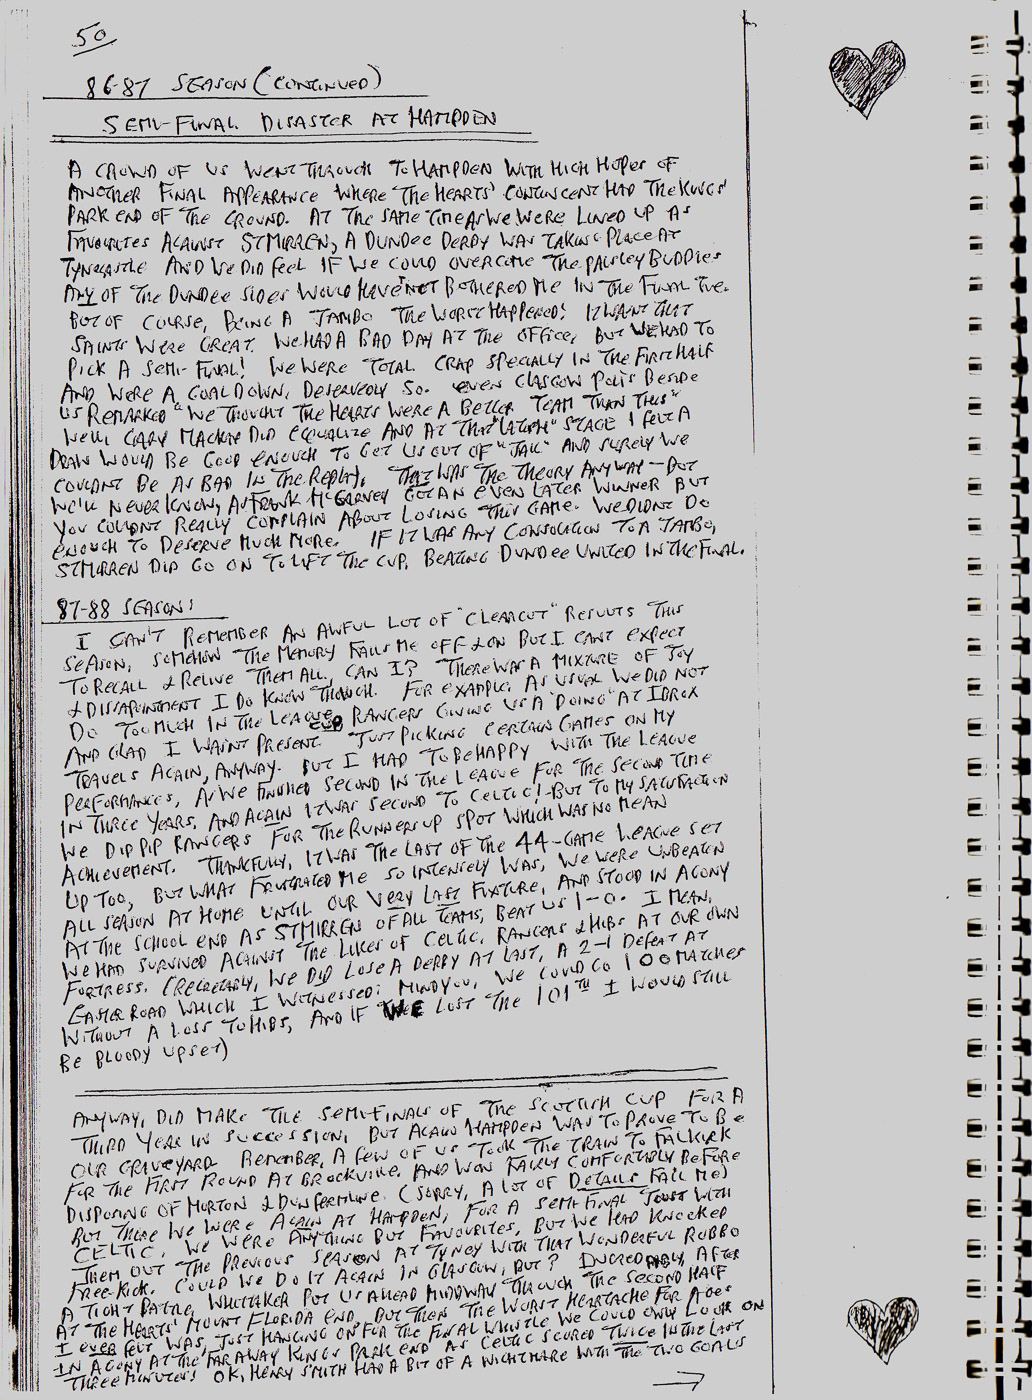 50
86-87 SEASON (CONTINUED)
SEMI-FINAL DISASTER AT HAMPDEN
A CROWD OF US WENT THROUGH TO HAMPDEN WITH HIGH HOPES OF
ANOTHER FINAL APPEARANCE WHERE THE HEARTS' CONTINGENT HAD THE KINGS'
PARK END OF THE GROUND. AT THE SAME TIME AS WE WERE LINED UP AS
FAVOURITES AGAINST ST MIRREN, A DUNDEE DERBY WAS TAKING PLACE AT
TYNECASTLE AND WE DID FEEL IF WE COULD OVERCOME THE PAISLEY BUDDIES
ANY OF THE DUNDEE SIDES WOULD HAVE NOT BOTHERED ME IN THE FINAL TIE.
BUT OF COURSE, BEING A JAMBO THE WORST HAPPENED! IT WASN'T THAT
SAINTS WERE GREAT. WE HAD A BAD DAY AT THE OFFICE, BUT WE HAD TO
PICK A SEMI-FINAL! WE WERE TOTAL CRAP SPECIALLY IN THE FIRST HALF
AND WERE A GOAL DOWN, DESERVEDLY SO. EVEN GLASGOW POLIS BESIDE
US REMARKED "WE THOUGHT THE HEARTS WERE A BETTER TEAM THAN THIS"
WELL GARY MACKAY DID EQUALIZE AND AT THAT "LATISH" STAGE I FELT A
DRAW WOULD BE GOOD ENOUGH TO GET US OUT OF "JAIL" AND SURELY WE
COULDNT BE AS BAD IN THE REPLAY. THAT WAS THE THEORY ANYWAY - BUT
WE'LL NEVER KNOW, AS FRANK McGARVEY GOT AN EVEN LATER WINNER BUT
YOU COULDNT REALLY COMPLAIN ABOUT LOSING THIS GAME. WE DIDNT DO
ENOUGH TO DESERVE MUCH MORE. IF IT WAS ANY CONSOLATION TO A JAMBO,
ST MIRREN DID GO ON TO LIFT THE CUP, BEATING DUNDEE UNITED IN THE FINAL.
87-88 SEASON:
I CAN'T REMEMBER AN AWFUL LOT OF "CLEARCUT" RESULTS THIS
SEASON, SOMEHOW THE MEMORY FAILS ME OFF & ON BUT I CANT EXPECT
TO RECALL & RELIVE THEM ALL, CAN I? THERE WAS A MIXTURE OF JOY
& DISSAPOINTMENT I DO KNOW THOUGH. FOR EXAMPLE, AS USUAL WE DID NOT
DO TOO MUCH IN THE LEAGUE CUP RANGERS GIVING US A "DOING" AT IBROX
AND GLAD I WASN'T PRESENT. JUST PICKING CERTAIN GAMES ON MY
TRAVELS AGAIN, ANYWAY. BUT I HAD TO BE HAPPY WITH THE LEAGUE
PERFORMANCES, AS WE FINISHED SECOND IN THE LEAGUE FOR THE SECOND TIME
IN THREE YEARS, AND AGAIN IT WAS SECOND TO CELTIC! BUT TO MY SATISFACTION
WE DID PIP RANGERS FOR THE RUNNERS UP SPOT WHICH WAS NO MEAN
ACHIEVEMENT. THANKFULLY, IT WAS THE LAST OF THE 44-GAME LEAGUE SET
UP TOO, BUT WHAT FRUSTRATED ME SO INTENSELY WAS, WE WERE UNBEATEN
ALL SEASON AT HOME UNTIL OUR VERY LAST FIXTURE, AND STOOD IN AGONY
AT THE SCHOOL END AS ST MIRREN OF ALL TEAMS, BEAT US 1-0. I MEAN,
WE HAD SURVIVED AGAINST THE LIKES OF CELTIC, RANGERS & HIBS AT OUR OWN
FORTRESS. (REGRETABLY, WE DID LOSE A DERBY AT LAST, A 2-1 DEFEAT AT
EASTER ROAD WHICH I WITNESSED: MIND YOU, WE COULD GO 100 MATCHES
WITHOUT A LOSS TO HIBS, AND IF WE LOST THE 101TH I WOULD STILL
BE BLOODY UPSET)
ANYWAY, DID MAKE THE SEMI-FINALS OF THE SCOTTISH CUP FOR A
THIRD YEAR IN SUCCESSION, BUT AGAIN HAMPDEN WAS TO PROVE TO BE
OUR GRAVEYARD REMEMBER, A FEW OF US TOOK THE TRAIN TO FALKIRK
FOR THE FIRST ROUND AT BROCKVILLE. AND WON FAIRLY COMFORTABLY BEFORE
DISPOSING OF MORTON & DUNFERMLINE. (SORRY, A LOT OF DETAILS FAIL ME)
BUT THERE WE WERE AGAIN AT HAMPDEN, FOR A SEMI-FINAL JOUST WITH
CELTIC. WE WERE ANYTHING BUT FAVOURITES, BUT WE HAD KNOCKED
THEM OUT THE PREVIOUS SEASON AT TYNEY WITH THAT WONDERFUL ROBBO
FREE-KICK. COULD WE DO IT AGAIN IN GLASGOW, BUT? INCREDABLY, AFTER
A TIGHT BATTLE, WHITTAKER PUT US AHEAD MIDWAY THROUGH THE SECOND HALF
AT THE HEARTS' MOUNT FLORIDA END, BUT THEN THE WORST HEARTACHE FOR AGES
I EVER FELT WAS, JUST HANGING ON FOR THE FINAL WHISTLE WE COULD ONLY LOOK ON
IN AGONY AT THE FARAWAY KINGS PARK END AS CELTIC SCORED TWICE IN THE LAST
THREE MINUTES OK, HENRY SMITH HAD A BIT OF A NIGHTMARE WITH THE TWO GOALS